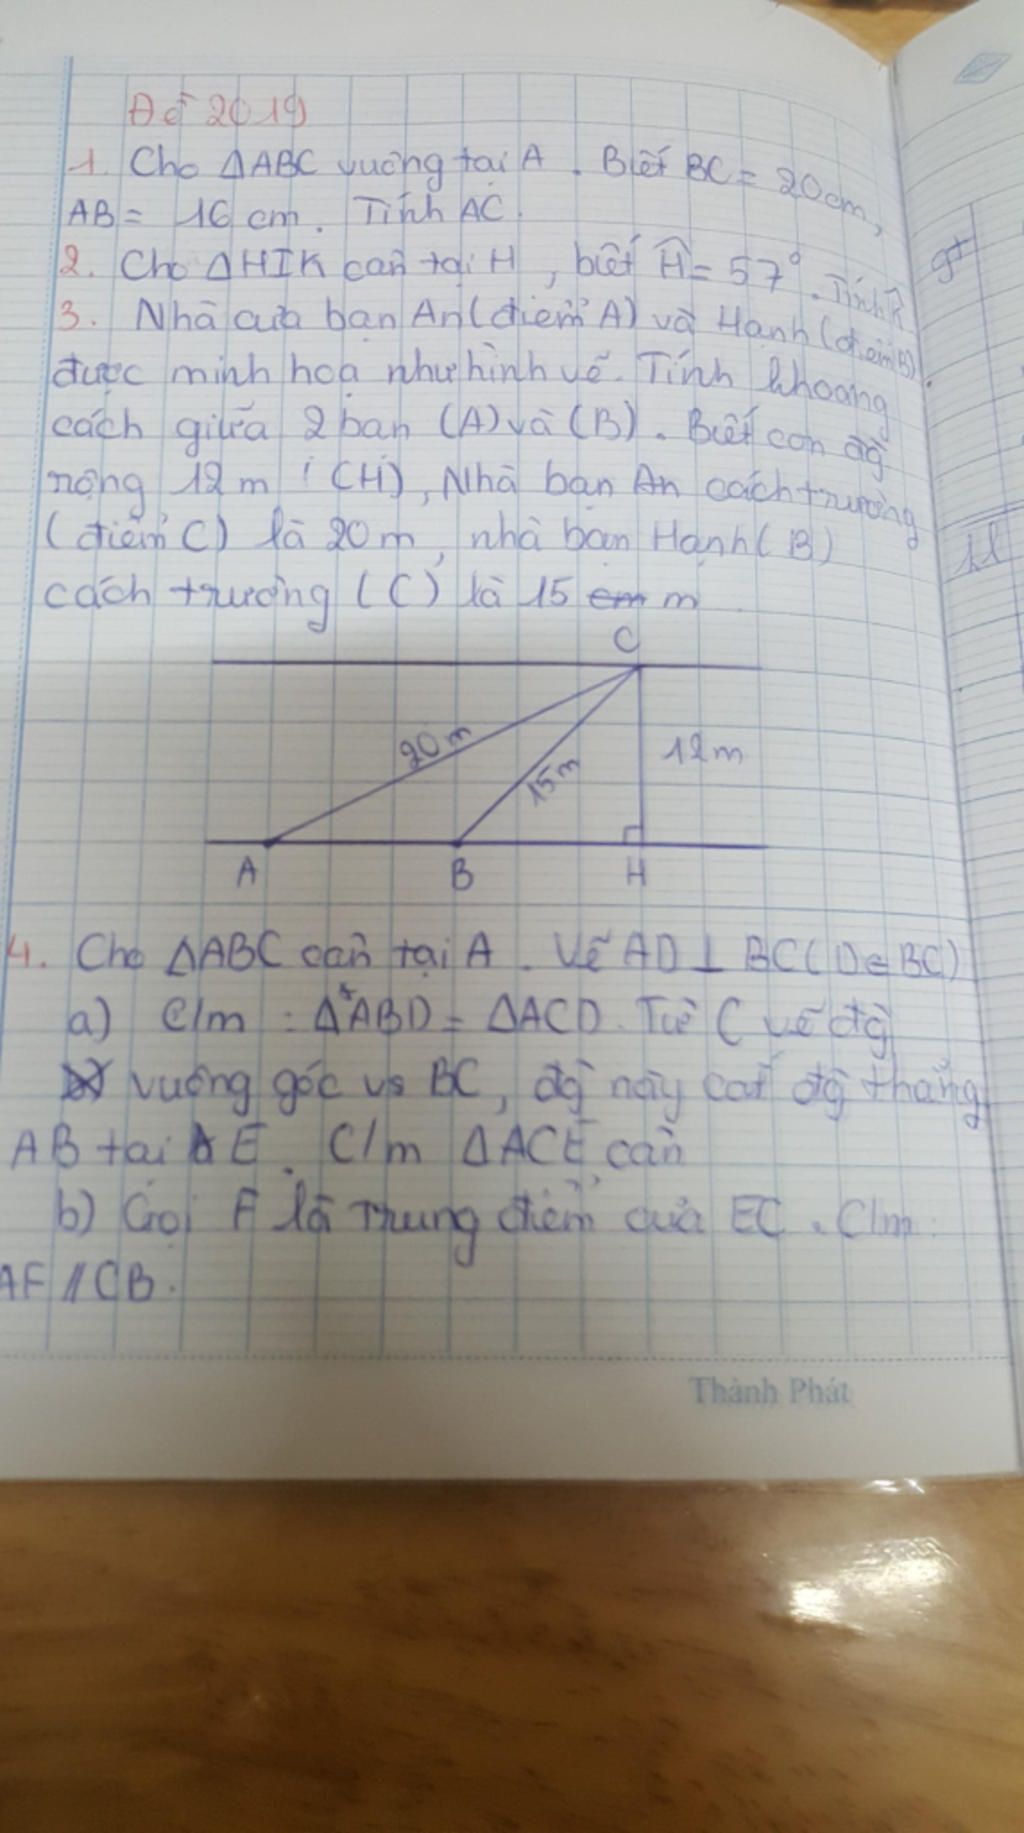 Đề 2019
1. Cho ΔABC vuông tại A. Biết BC = 20cm,
AB = 16 cm. Tính AC.
2. Cho ΔHIK cân tại H, biết Ĥ = 57°. Tính K̂
3. Nhà của bạn An (điểm A) và Hạnh (điểm B)
được minh hoạ như hình vẽ. Tính khoảng
cách giữa 2 bạn (A) và (B). Biết con đg
rộng 12 m (CH), Nhà bạn An cách trường
(điểm C) là 20m, nhà bạn Hạnh (B)
cách trường (C) là 15 cm m
C
20 m
15m
12m
A
B
H
4. Cho ΔABC cân tại A. Vẽ AD ⊥ BC (D ∈ BC)
a) C/m : ΔABD = ΔACD. Từ C vẽ đg
vuông góc vs BC, đg này cắt đg thẳng
AB tại E. C/m ΔACE cân
b) Gọi F là Trung điểm của EC. C/m
AF // CB.
Thành Phát
gt